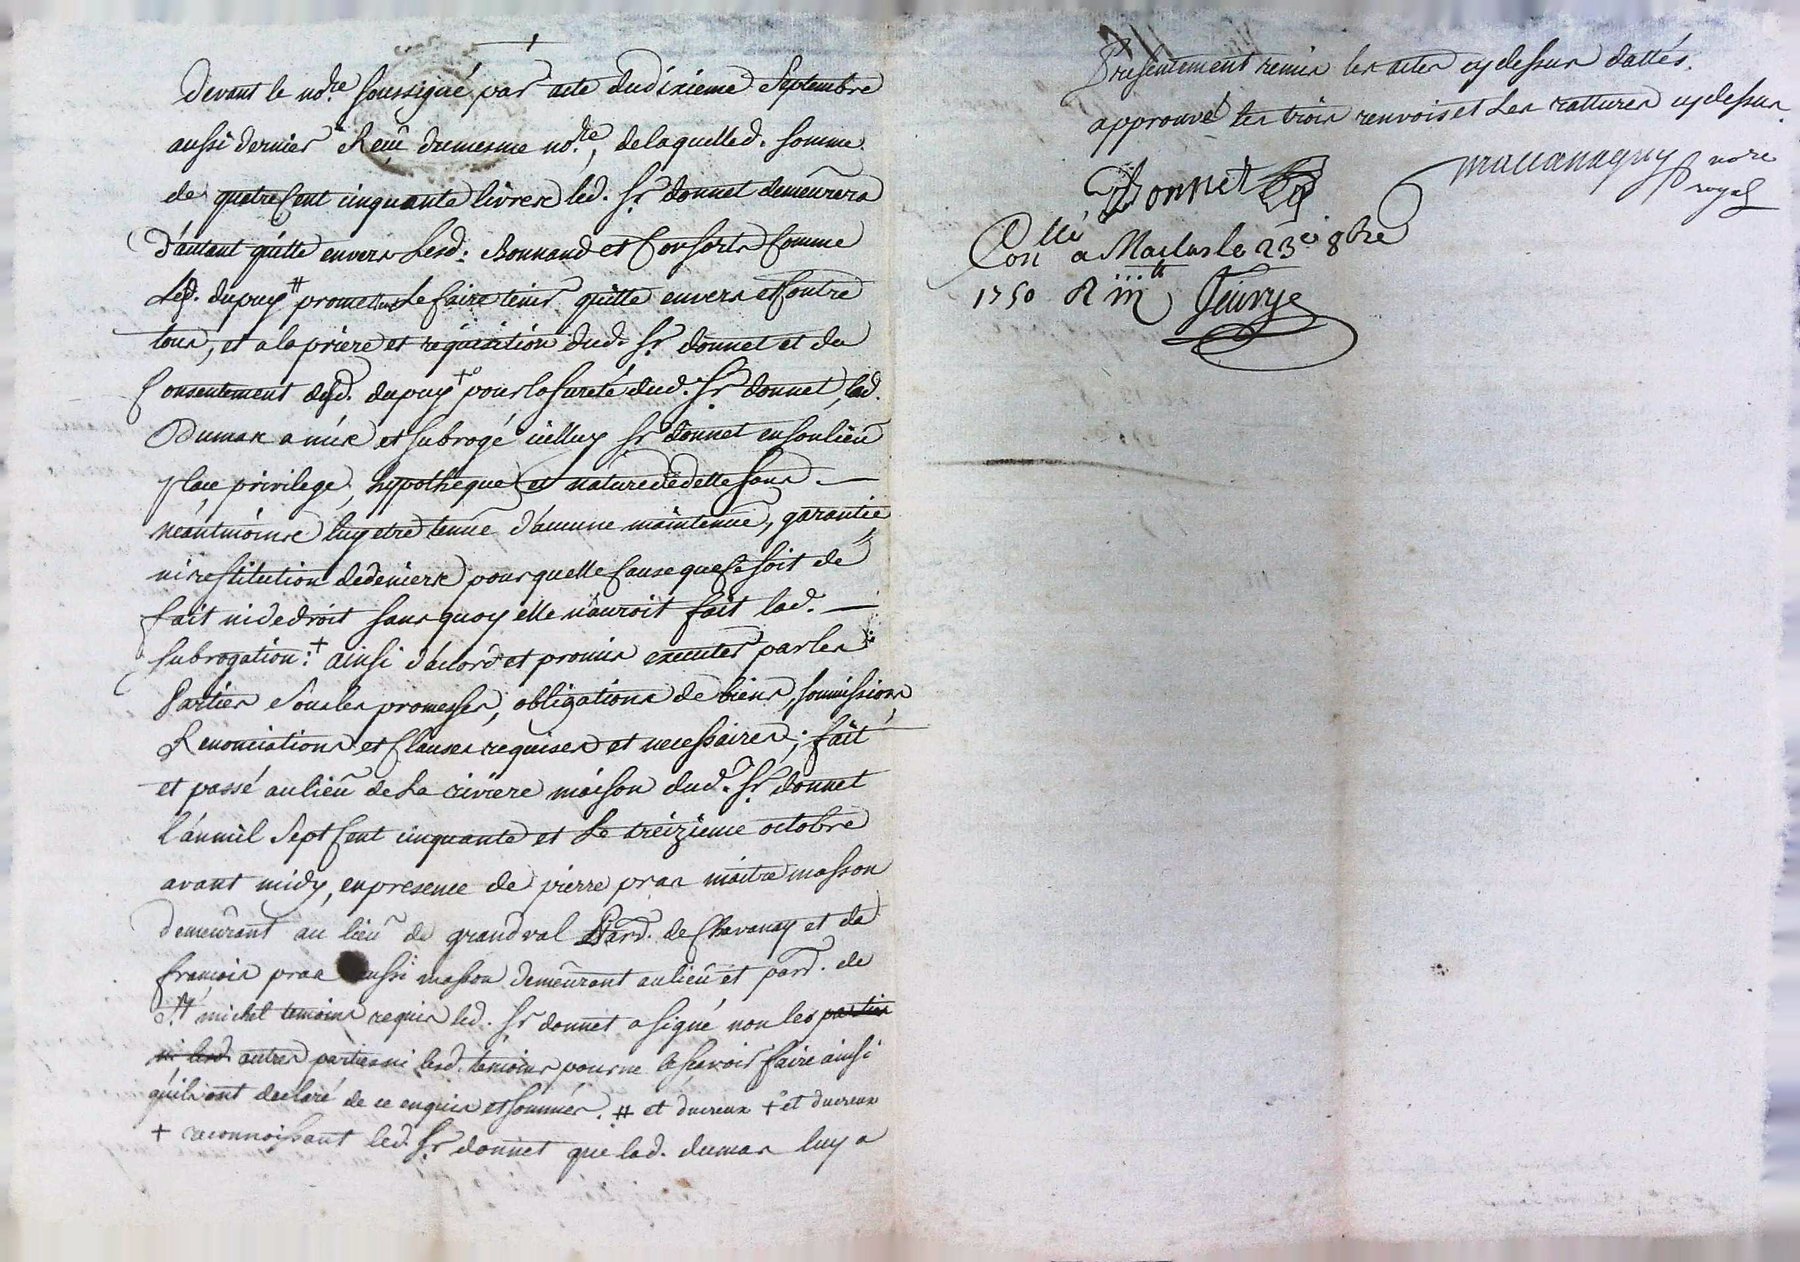 devant le no.re soussigné, par acte du dixieme Septembre
aussi dernier Reçu du mesme no.re, de laquelle d. somme
de quatre Cent cinquante livres led. Sr. donnet demeurera
d'autant quitte envers lesd. Bonnand et Consorts Comme
Led. dupuy # promettant le faire tenir quitte envers et Contre
tous, et a la priere et requisition dud. Sr. donnet et du
Consentement dud. dupuy + pour la sureté dud. Sr. donnet, lad.
Dumas a mis et subrogé icelluy Sr. donnet en son lieu
place privilege, hypotheque et nature de dette sans
néantmoins luy etre tenue d'aucune maintenue, garantie
ni restitution de deniers pour quelle Cause que Ce soit de
fait ni de droit sans quoy elle n'auroit fait lad.
subrogation: + ainsi d'acord et promis executer par les
Parties Sous les promesses, obligations de biens, soumissions
Renonciations et Clauses requises et necessaires; fait
et passé au lieu de La riviere maison dud. Sr. donnet
l'an mil Sept Cent cinquante et Le treizieme octobre
avant midy, en presence de pierre pras maitre masson
demeurant au lieu de grandval Par. de Chavanay et de
francois pras aussi masson demeurant au lieu et par. de
St. michel temoins requis led. Sr. donnet a signé non les parties
ni lesd. autres parties ni lesd. temoins pour ne le scavoir faire ainsi
qu'ils ont declaré de ce enquis et sommés. # et ducreux + et ducreux
+ reconnoissant led. Sr. donnet que lad. dumas luy a
Presentement remis les actes cy dessus dattés.
approuvé les trois renvois et les rattures cy dessus.
Donnet
no.re
royal
Con.llé a Maclas le 23e 8bre
1750 R